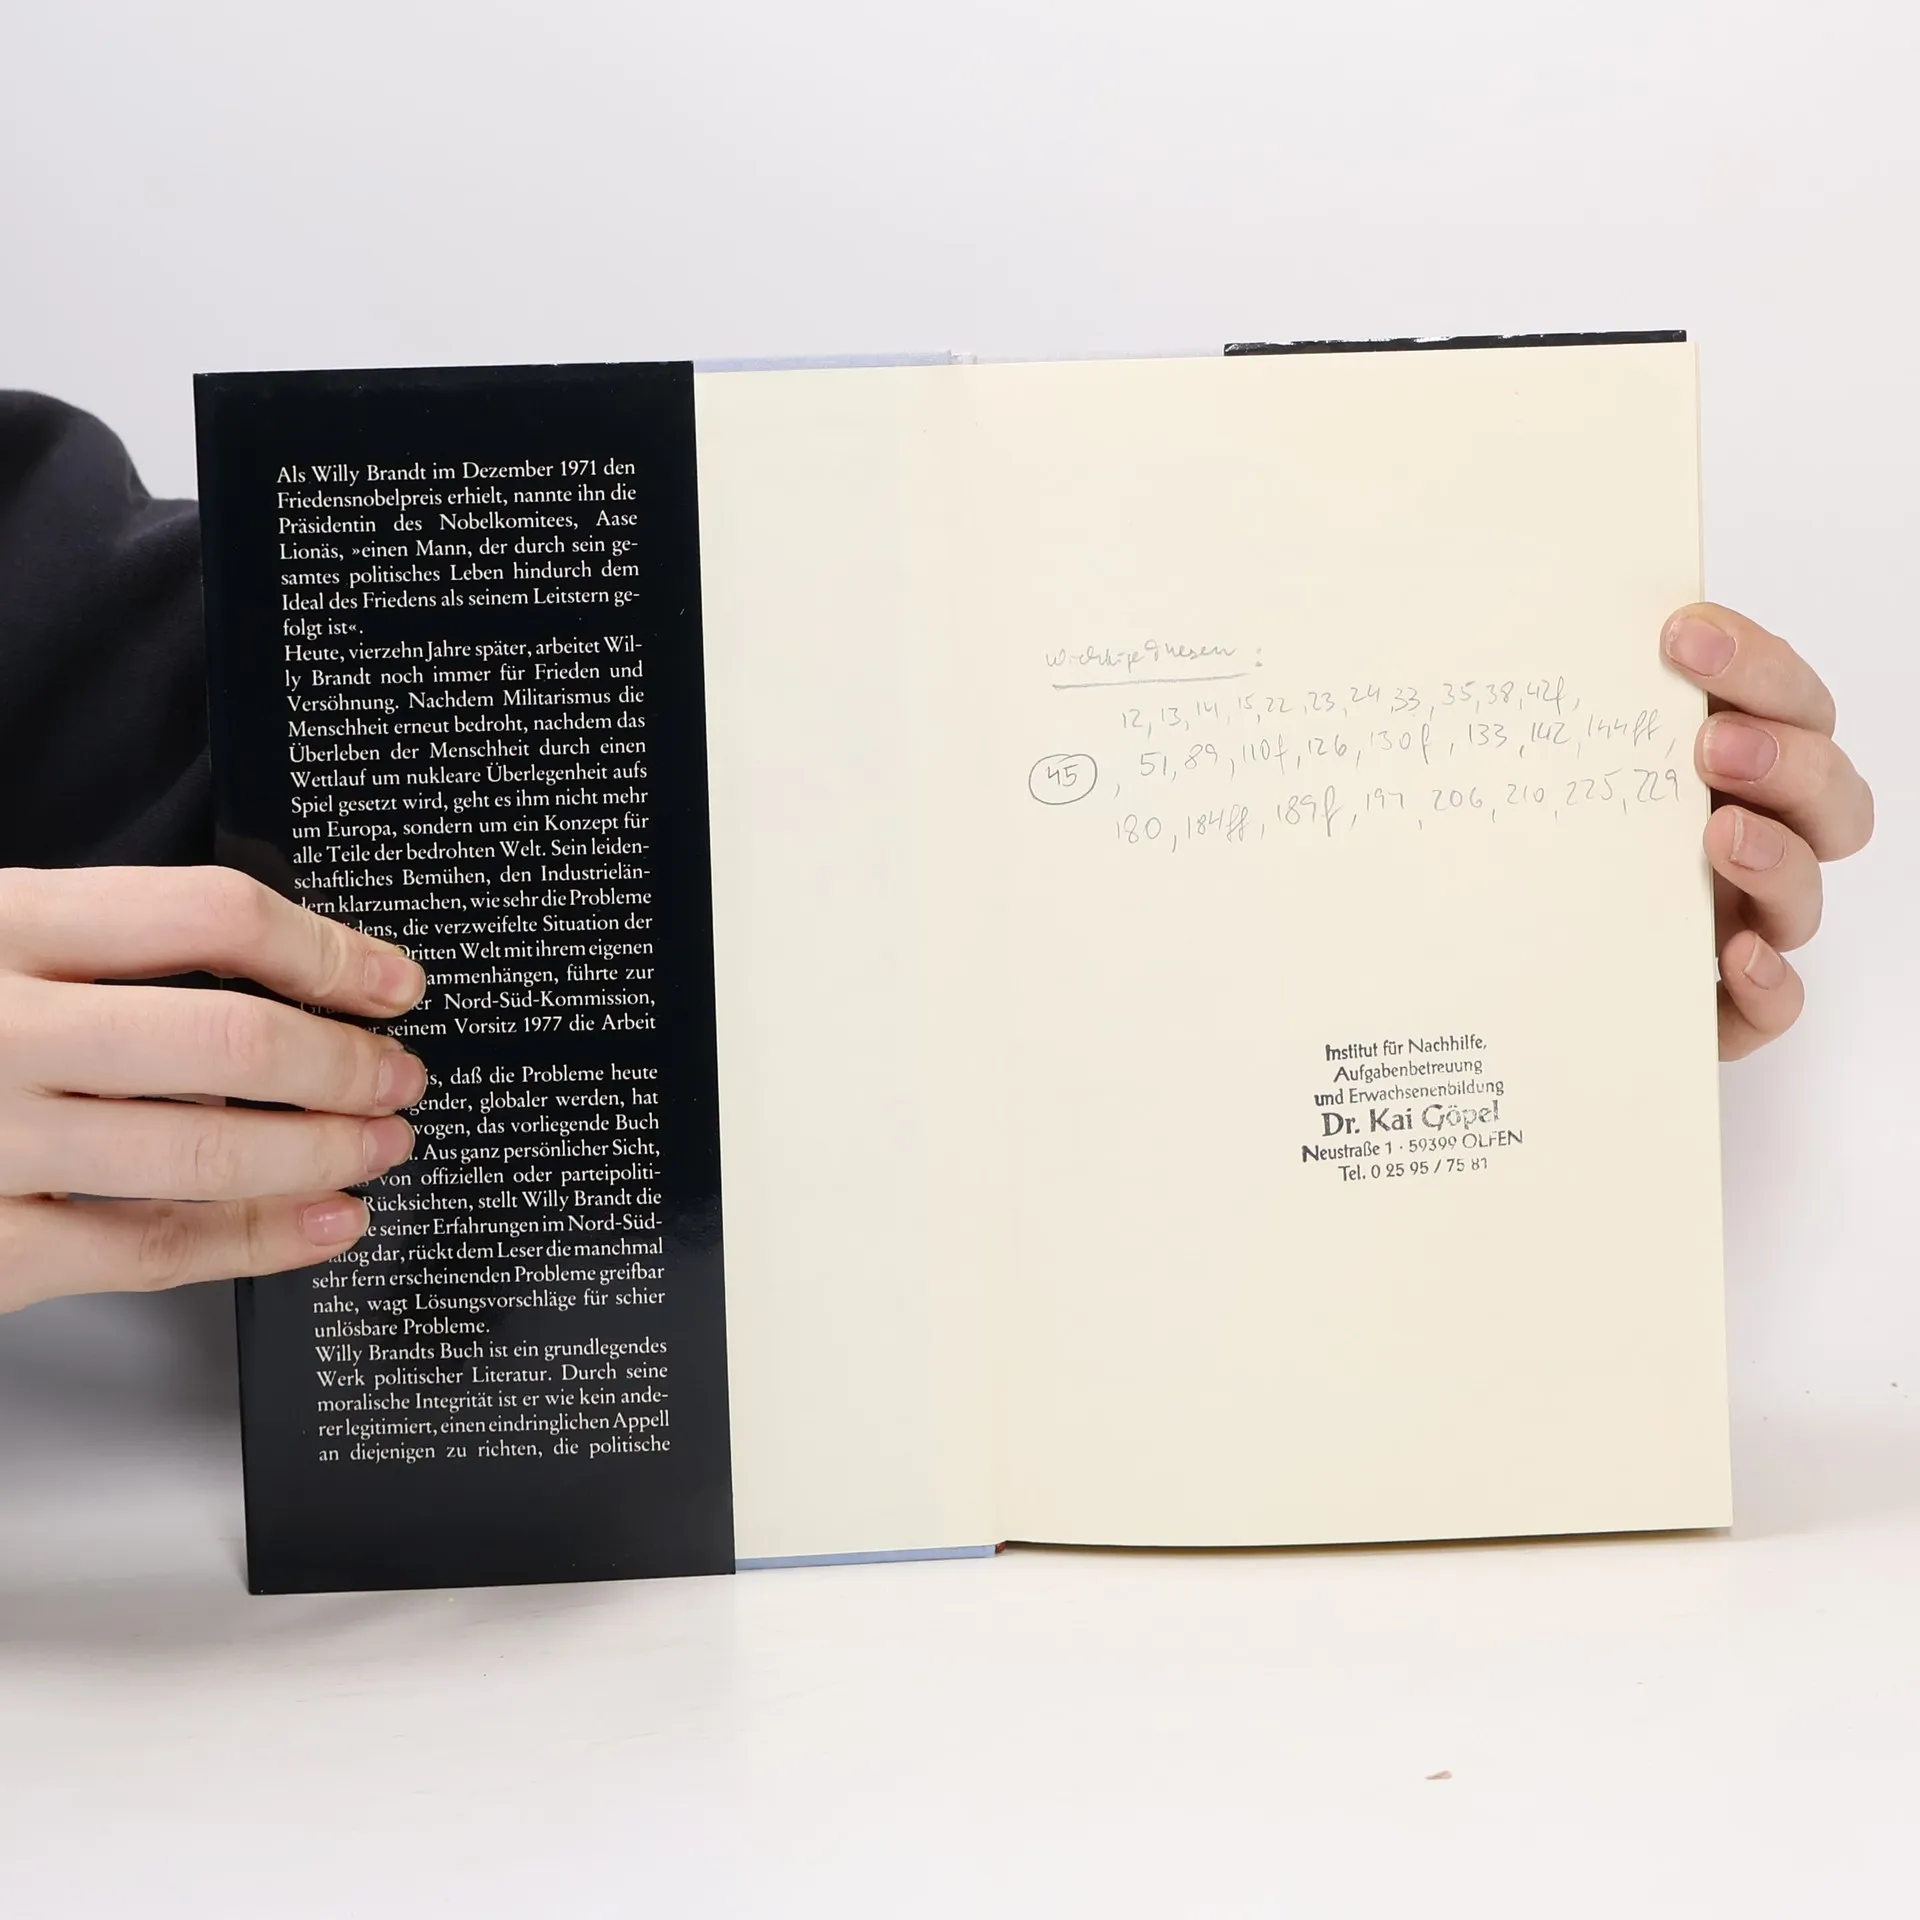 Als Willy Brandt im Dezember 1971 den
Friedensnobelpreis erhielt, nannte ihn die
Präsidentin des Nobelkomitees, Aase
Lionäs, »einen Mann, der durch sein ge-
samtes politisches Leben hindurch dem
Ideal des Friedens als seinem Leitstern ge-
folgt ist«.
Heute, vierzehn Jahre später, arbeitet Wil-
ly Brandt noch immer für Frieden und
Versöhnung. Nachdem Militarismus die
Menschheit erneut bedroht, nachdem das
Überleben der Menschheit durch einen
Wettlauf um nukleare Überlegenheit aufs
Spiel gesetzt wird, geht es ihm nicht mehr
um Europa, sondern um ein Konzept für
alle Teile der bedrohten Welt. Sein leiden-
schaftliches Bemühen, den Industrielän-
dern klarzumachen, wie sehr die Probleme
die verzweifelte Situation der
Dritten Welt mit ihrem eigenen
führte zur
Nord-Süd-Kommission,
seinem Vorsitz 1977 die Arbeit
daß die Probleme heute
globaler werden, hat
das vorliegende Buch
Aus ganz persönlicher Sicht,
von offiziellen oder parteipoliti-
Rücksichten, stellt Willy Brandt die
seiner Erfahrungen im Nord-Süd-
dar, rückt dem Leser die manchmal
sehr fern erscheinenden Probleme greifbar
nahe, wagt Lösungsvorschläge für schier
unlösbare Probleme.
Willy Brandts Buch ist ein grundlegendes
Werk politischer Literatur. Durch seine
moralische Integrität ist er wie kein ande-
rer legitimiert, einen eindringlichen Appell
an diejenigen zu richten, die politische
Wichtige Thesen:
12, 13, 14, 15, 22, 23, 24, 33, 35, 38, 42f,
45, 51, 89, 110f, 126, 130f, 133, 142, 144ff,
180, 184ff, 189f, 197, 206, 210, 225, 229
Institut für Nachhilfe,
Aufgabenbetreuung
und Erwachsenenbildung
Dr. Kai Göpel
Neustraße 1 · 59399 OLFEN
Tel. 0 25 95 / 75 81